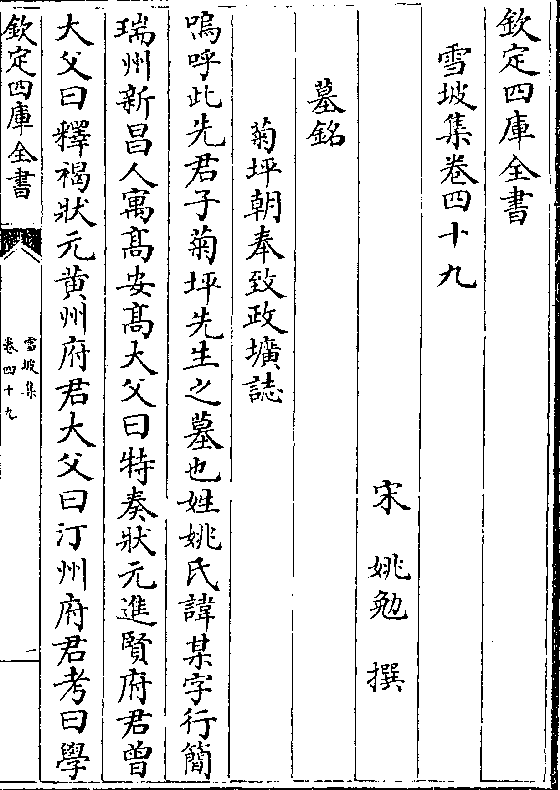 欽定四庫全書
雪坡集卷四十九
宋 姚勉 撰
墓銘
菊坪朝奉致政壙誌
嗚呼此先君子菊坪先生之墓也姓姚氏諱某字行簡
瑞州新昌人寓髙安髙大父曰特奏狀元進賢府君曾
大父曰釋褐狀元黄州府君大父曰汀州府君考曰學
欽定四庫全書
雪坡集
卷四十九
一